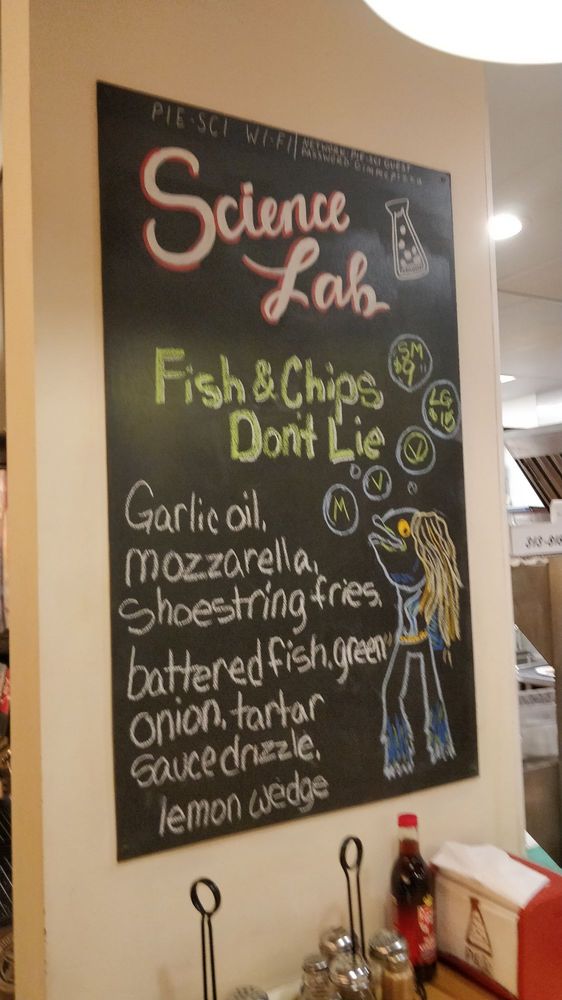 PIE-SCI WI-FI
NETWORK: PIE-SCI GUEST
PASSWORD
Science
Lab
Fish & Chips
Don't Lie
SM
$9
LG
$18
V
V
M
Garlic oil,
mozzarella,
Shoestring fries,
battered fish, green
onion, tartar
sauce drizzle,
lemon wedge